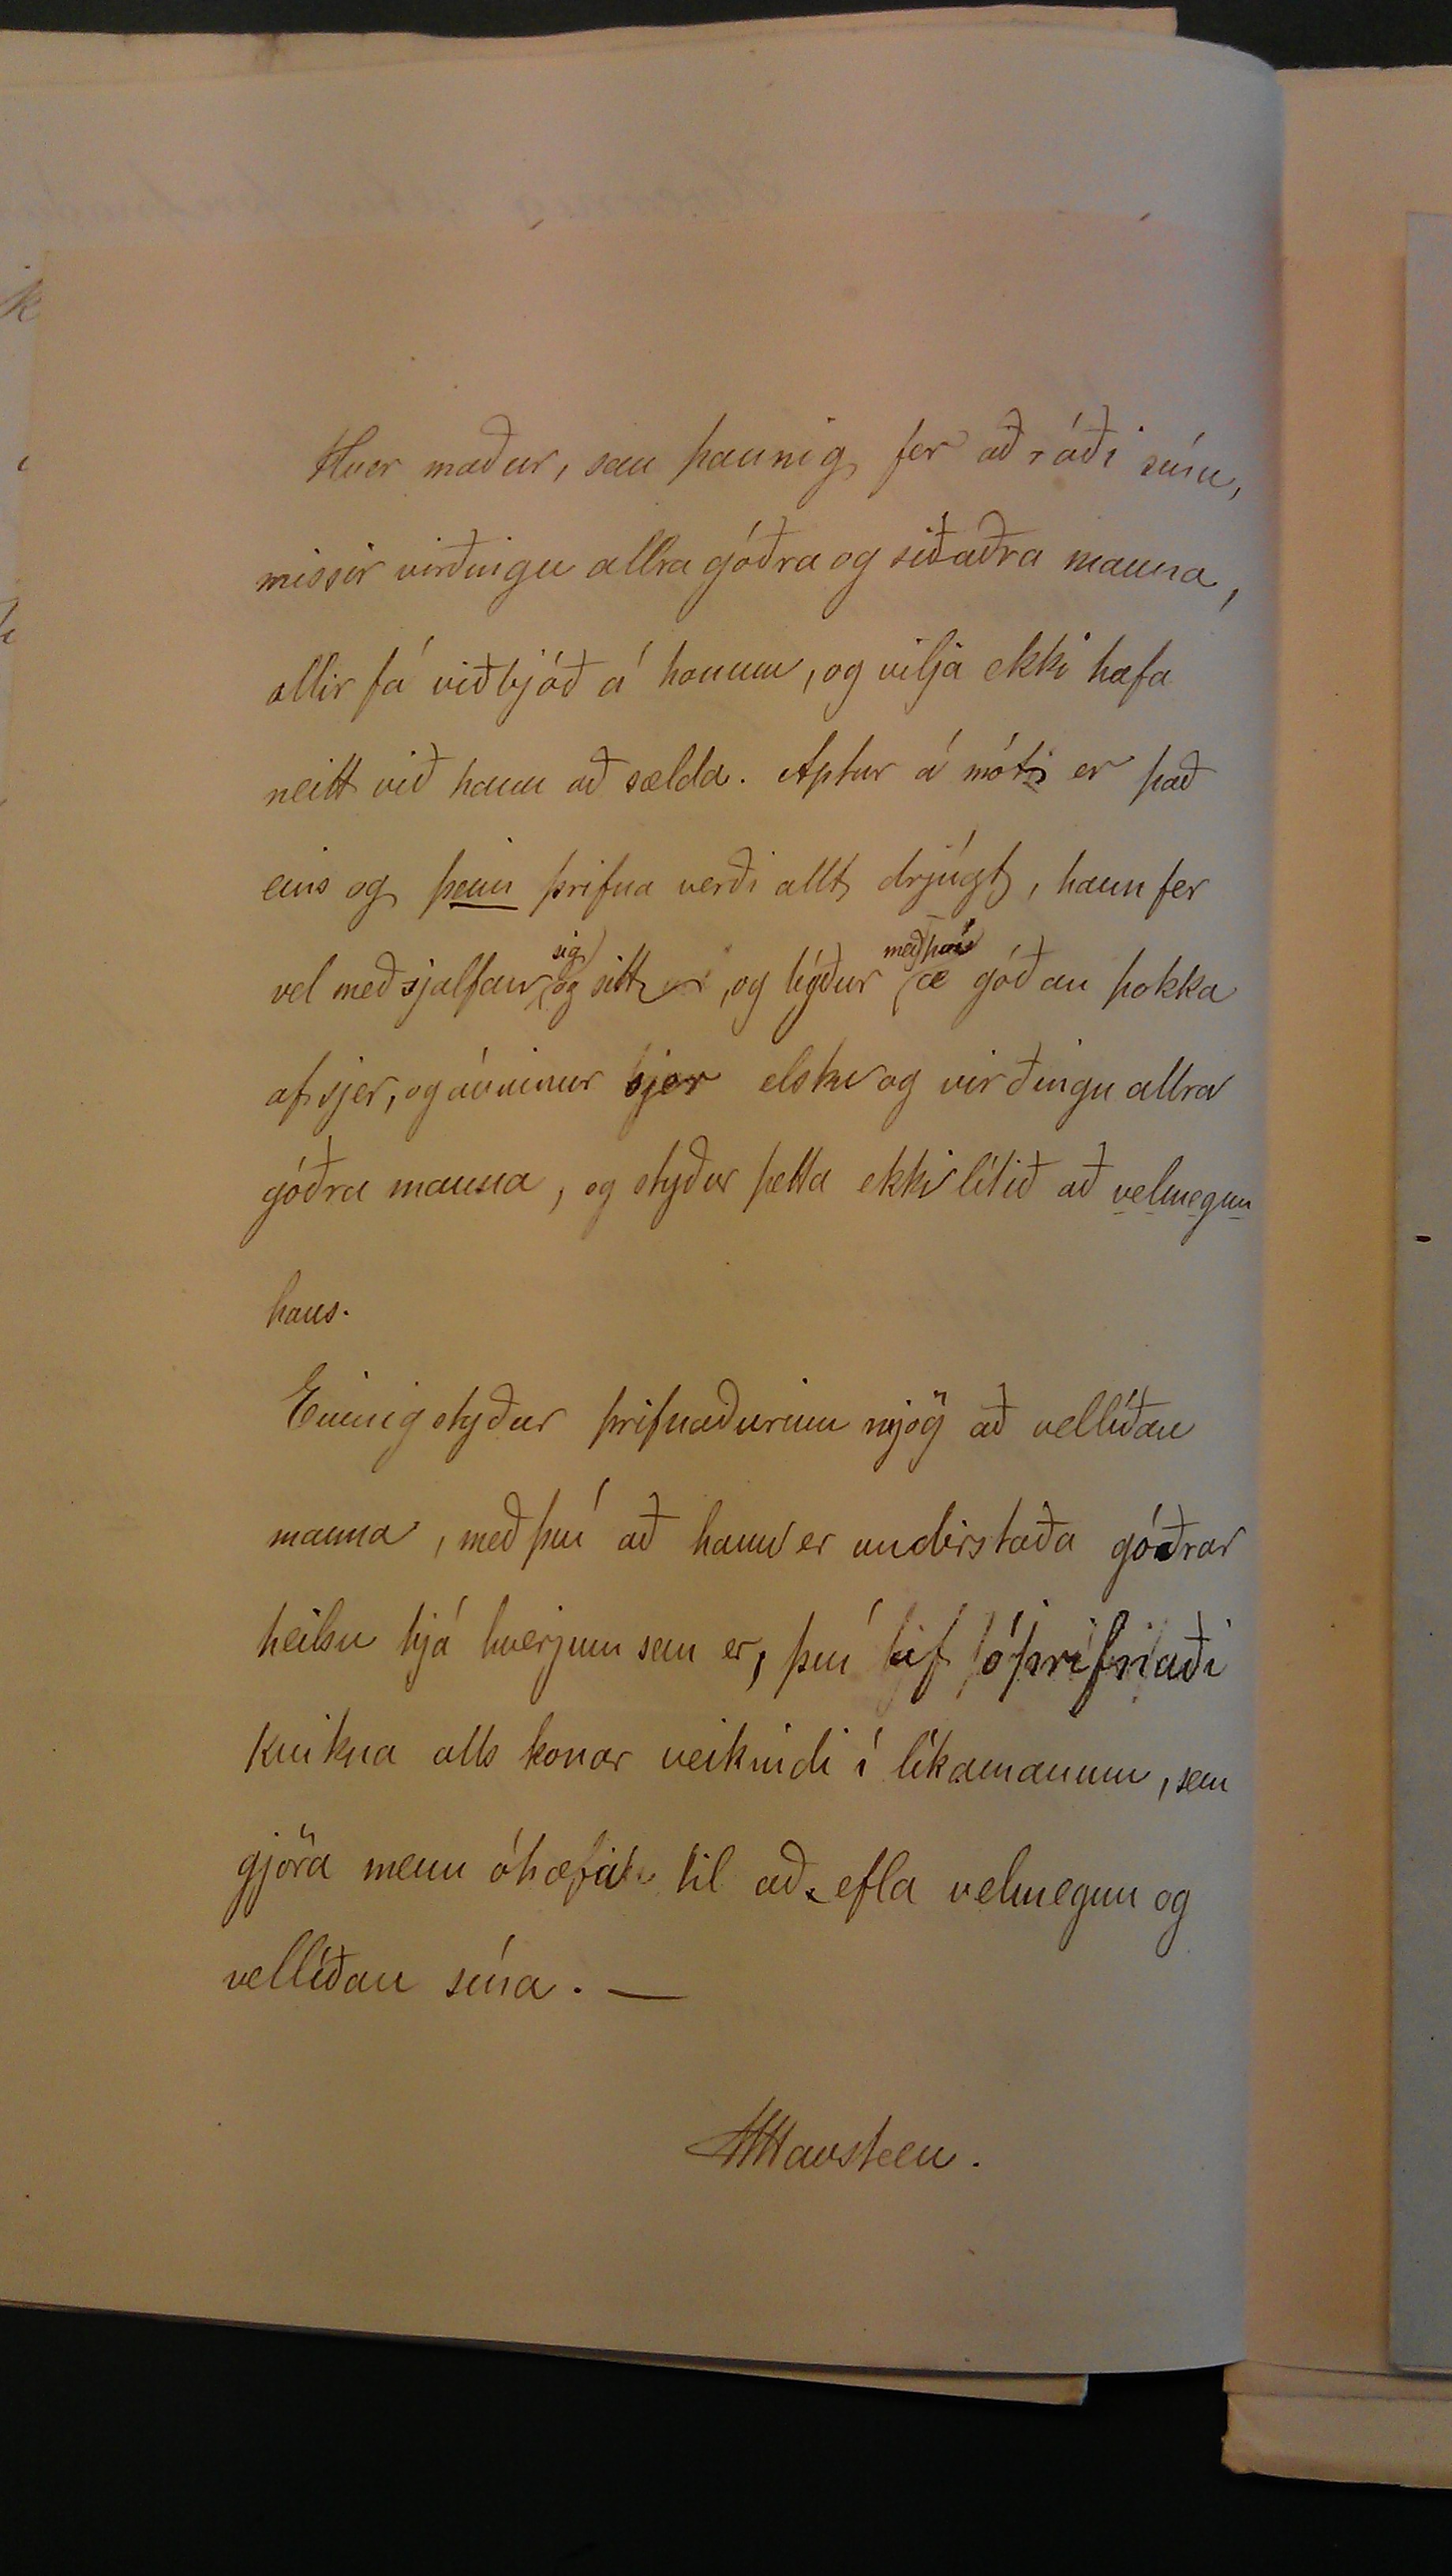 Hver maður, sem þannig fer að ráði sínu,
missir virðingu allra góðra og siðaðra manna,
allir fá viðbjóð á honum, og vilja ekki hafa
neitt við hann að sælda. Aptur á móti er það
eins og þeim þrifna verði allt drjúgt, hann fer
vel með sjalfan sig og sitt, og býður með því æ góðan þokka
af sjer, og ávinnur sjer elsku og virðingu allra
góðra manna, og styður þetta ekki lítið að velmegun
hans.
Einnig styður þrifnaðurinn mjög að vellíðan
manna, með því að hann er undirstaða góðrar
heilsu hjá hverjum sem er, því af óþrifnaði
kvikna alls konar veikindi í líkamanum, sem
gjöra menn óhæfa til að efla velmegun og
vellíðan sína. —
HHavsteen.